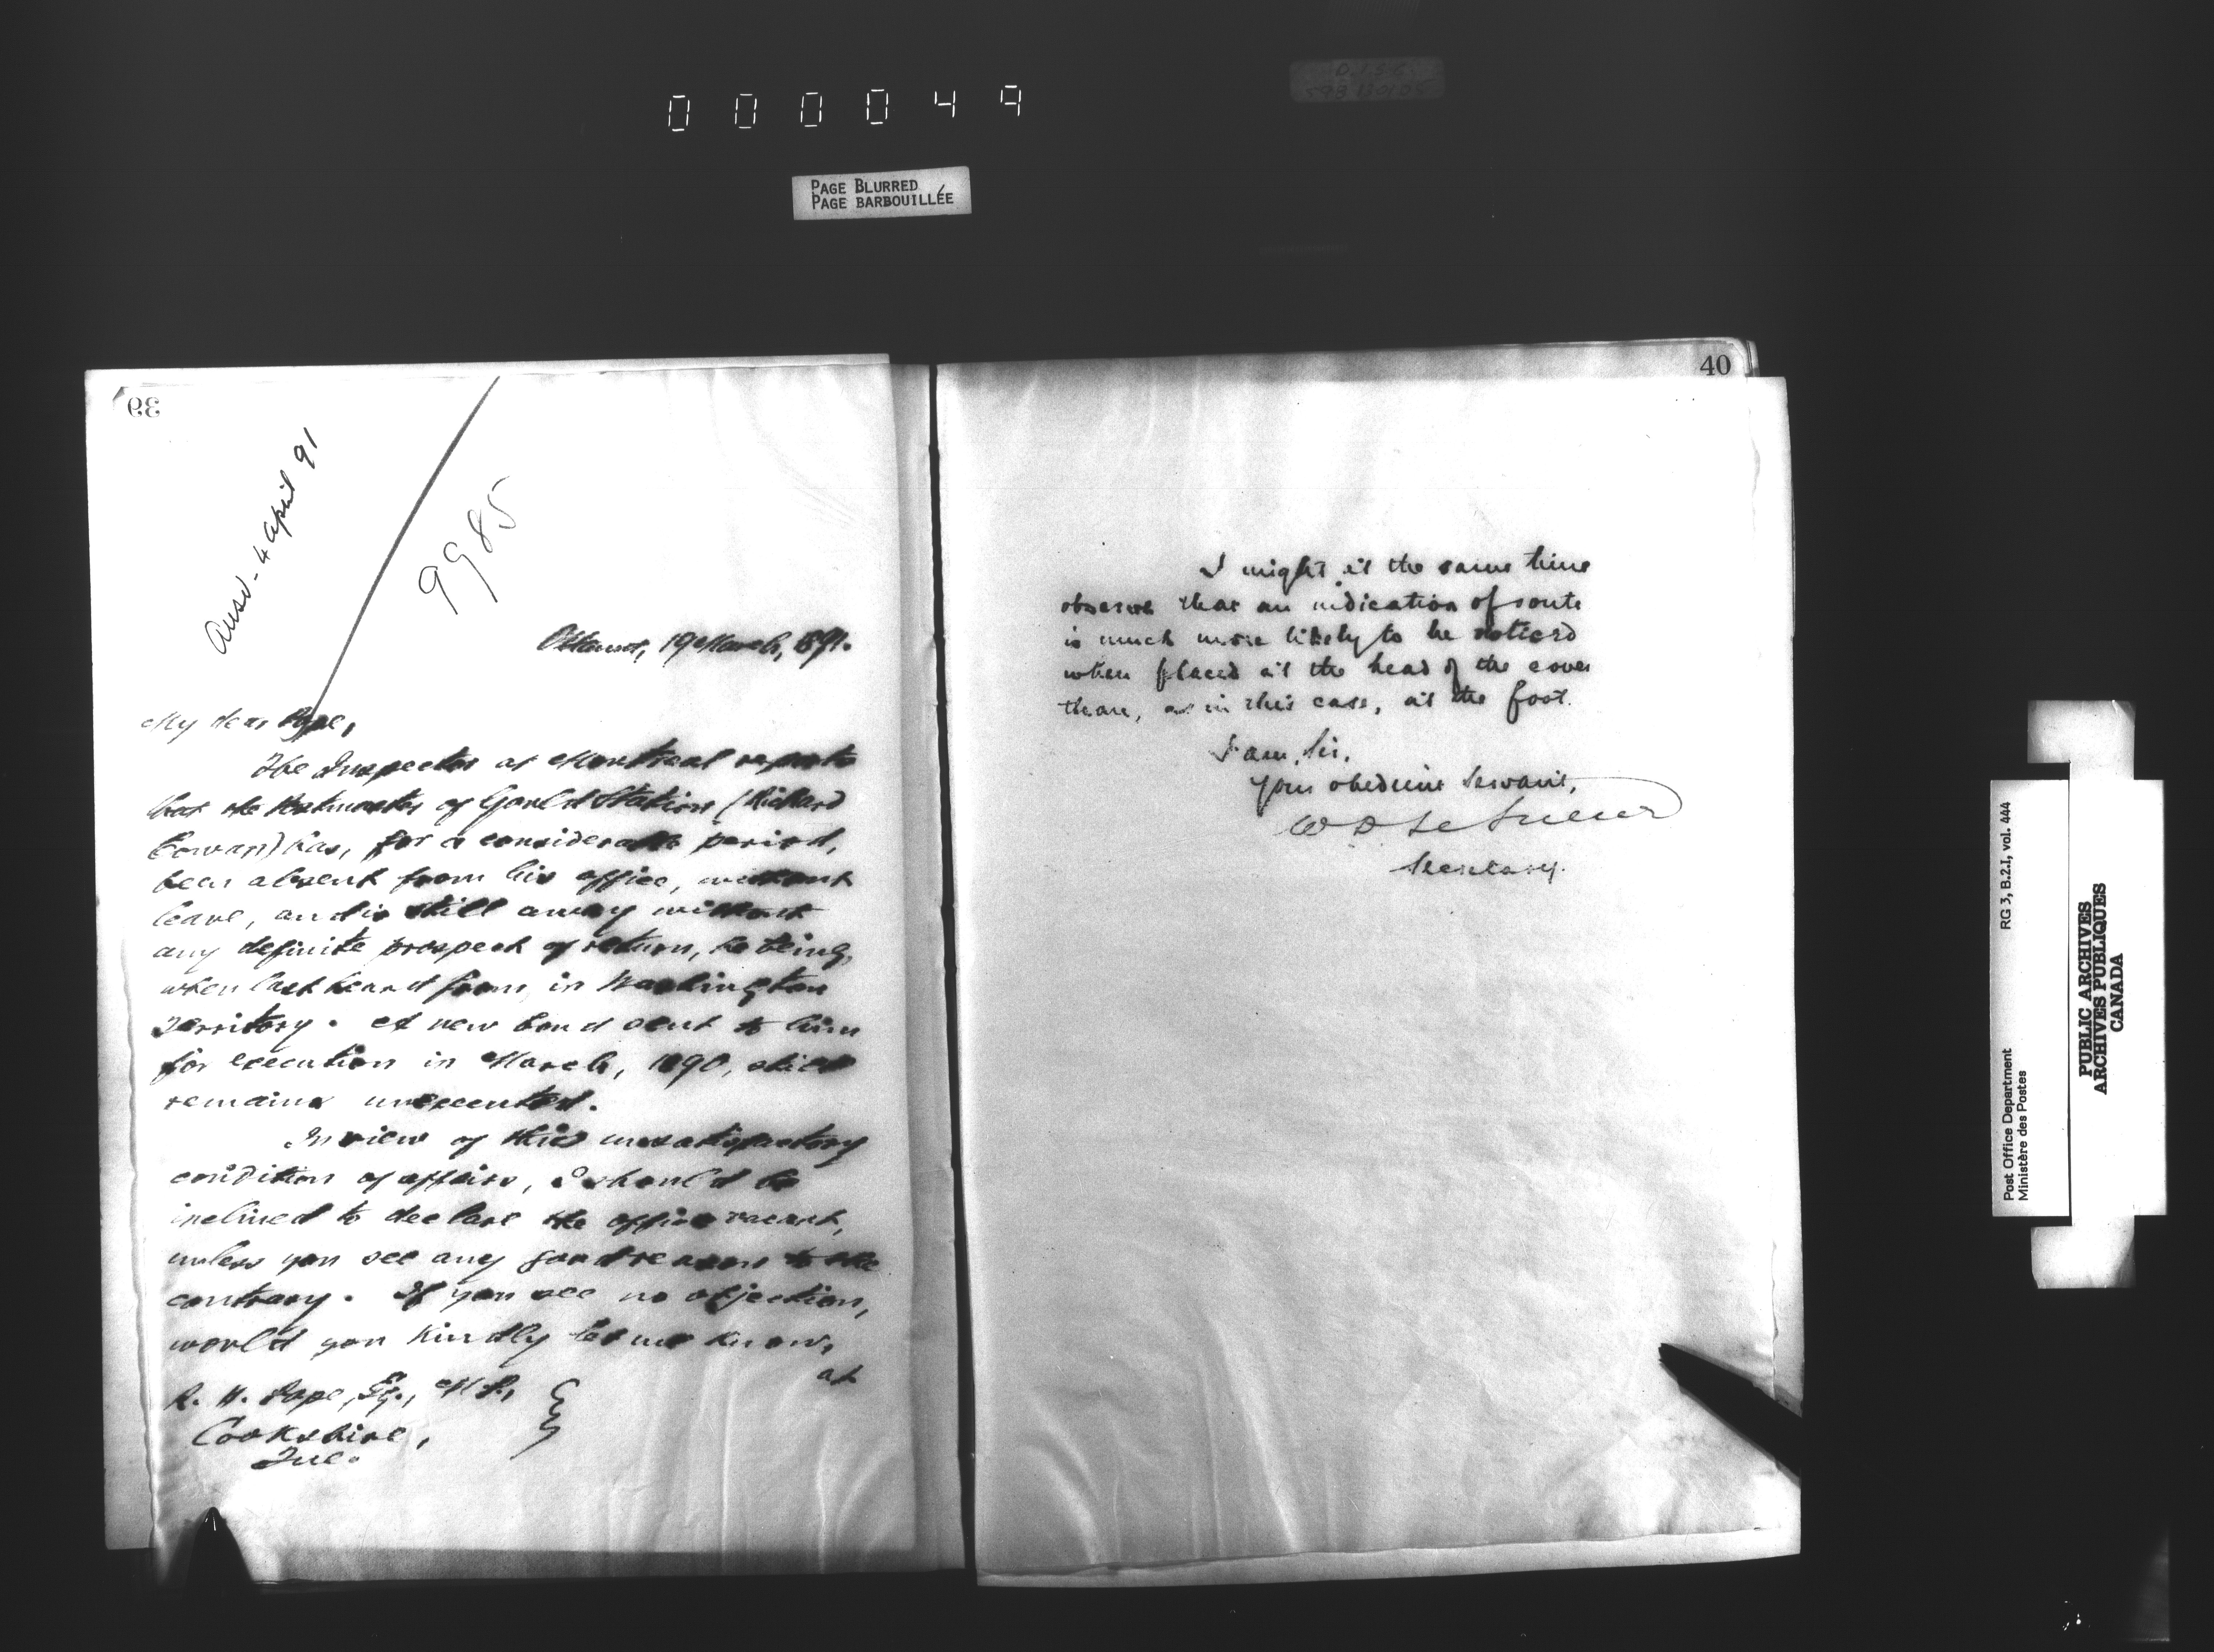 000049
PAGE BLURRED
PAGE BARBOUILLÉE
39
Ansd - 4 April 91
9985
Ottawa, 19 March, 891.
My dear Pope,
The Inspector at Montreal reports
that the Postmaster of Gould Station (Richard
Cowan) has, for a considerable period,
been absent from his office, without
leave, and is still away without
any definite prospect of return, he being,
when last heard from, in Washington
Territory. A new bond sent to him
for execution in March, 1890, still
remains unexecuted.
In view of this unsatisfactory
condition of affairs, I should be
inclined to declare the office vacant,
unless you see any good reason to the
contrary. If you see no objection,
would you kindly let me know,
at
R. H. Pope, Esq., M.P.,
Cookshire,
Que.
40
I might at the same time
observe that an indication of route
is much more likely to be noticed
when placed at the head of the cover
than, as in this case, at the foot.
I am, Sir,
Your obedient Servant,
W D LeSueur
Secretary.
Post Office Department
Ministère des Postes
RG 3, B.2.I, vol. 444
PUBLIC ARCHIVES
ARCHIVES PUBLIQUES
CANADA